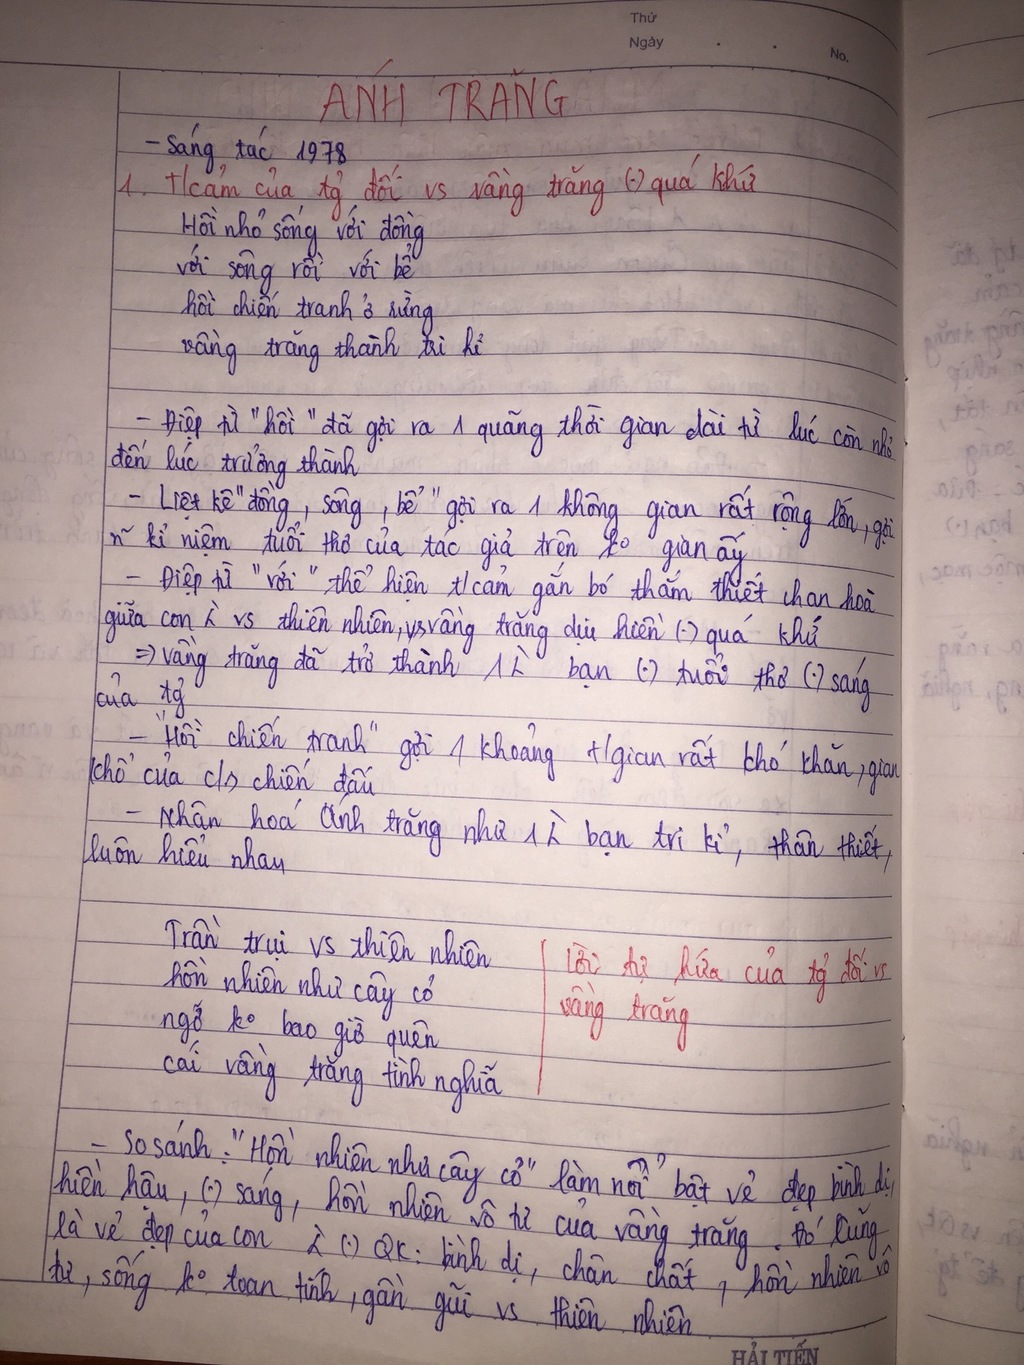 Thứ
Ngày . .
No.
ÁNH TRĂNG
- Sáng tác 1978
1. t/cảm của tg̉ đối vs vầng trăng (.) quá khứ
Hồi nhỏ sống với đồng
với sông rồi với bể
hồi chiến tranh ở rừng
vầng trăng thành tri kỉ
- Điệp từ "hồi" đã gợi ra 1 quãng thời gian dài từ lúc còn nhỏ
đến lúc trưởng thành
- Liệt kê "đồng, sông, bể" gợi ra 1 không gian rất rộng lớn, gợi
n~ kỉ niệm tuổi thơ của tác giả trên ko gian ấy
- Điệp từ "với" thể hiện t/cảm gắn bó thắm thiết chan hoà
giữa con λ vs thiên nhiên, vs vầng trăng dịu hiền (.) quá khứ
=> vầng trăng đã trở thành 1 λ̀ bạn (.) tuổi thơ (.) sáng
của tg̉
- "Hồi chiến tranh" gợi 1 khoảng t/gian rất khó khăn, gian
khổ của c/s chiến đấu
- Nhân hoá Ánh trăng như 1 λ̀ bạn tri kỉ, thân thiết,
luôn hiểu nhau
Trần trụi vs thiên nhiên
hồn nhiên như cây cỏ
ngỡ ko bao giờ quên
cái vầng trăng tình nghĩa
Lời tự hứa của tg̉ đối vs
vầng trăng
- So sánh: "Hồn nhiên như cây cỏ" làm nổi bật vẻ đẹp bình dị,
hiền hậu, (.) sáng, hồn nhiên vô tư của vầng trăng. Đó cũng
là vẻ đẹp của con λ̀ (.) QK: bình dị, chân chất, hồn nhiên vô
tư, sống ko toan tính, gần gũi vs thiên nhiên
HẢI TIẾN